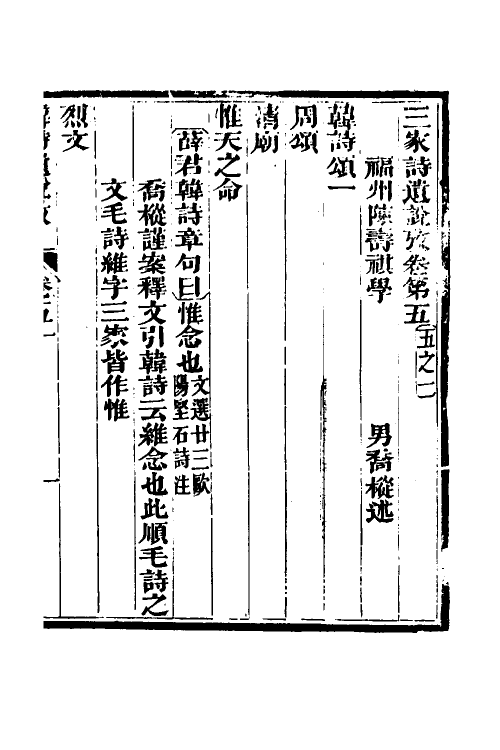 三家詩遺說攷卷第五 五之一
福州陳壽祺學 男喬樅述
韓詩頌一
周頌
清廟
惟天之命
薛君韓詩章句曰惟念也文選廿三歐陽堅石詩注
喬樅謹案釋文引韓詩云維念也此順毛詩之
文毛詩維字三家皆作惟
烈文